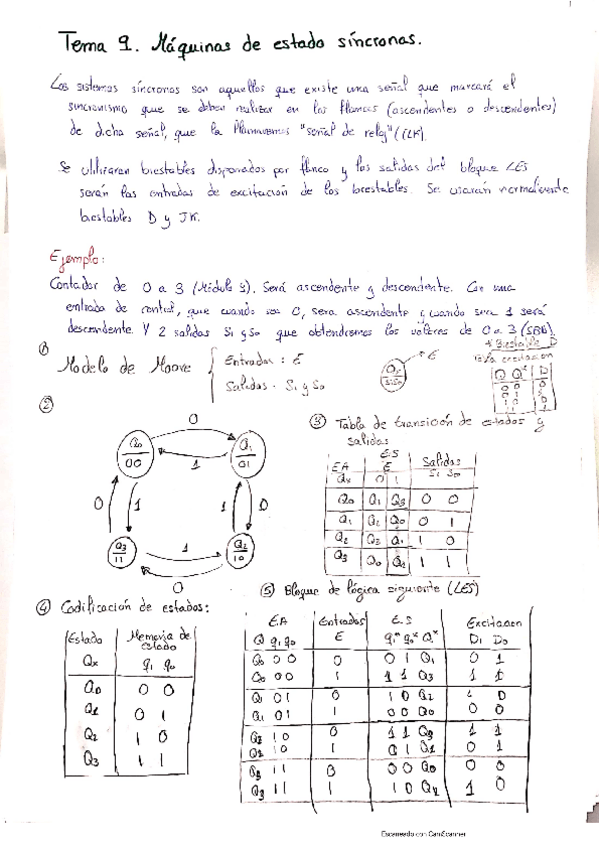 Tema 9. Máquinas de estado síncronas.
Los sistemas síncronos son aquellos que existe una señal que marcará el
sincronismo que se deben realizar en los flancos (ascendentes o descendentes)
de dicha señal, que la llamaremos "señal de reloj" (CLK).
Se utilizaran biestables disparados por flanco y las salidas del bloque LES
serán las entradas de excitación de los biestables. Se usarán normalmente
biestables D y JK.
Ejemplo:
Contador de 0 a 3 (Módulo). Será ascendente y descendente. Con una
entrada de control, que cuando sea 0, sera ascendente y cuando sea 1 será
descendente. Y 2 salidas S1 y S0 que obtendremos los valores de 0 a 3
① Modelo de Moore
Entradas: E
Salidas: S1 y S0
E
Biestable D
excitacion
Q Q* D
② 
0
Q0
00
1
Q1
01
0 1 1 0
Q3
11
1
Q2
10
0
③ Tabla de transición de estados y
salidas
EA ES Salidas
E
Qx 0 1 S1 S0
Q0 Q1 Q3 0 0
Q1 Q2 Q0 0 1
Q2 Q3 Q1 1 0
Q3 Q0 Q2 1 1
④ Codificación de estados:
Estado Memoria de
estado
Qx q1 q0
Q0 0 0
Q1 0 1
Q2 1 0
Q3 1 1
⑤ Bloque de lógica siguiente (LES)
EA Entradas E.S Excitacion
Q q1 q0 E q1* q0* Q* D1 D0
Q0 0 0 0 0 1 Q1 0 1
Q0 0 0 1 1 1 Q3 1 1
Q1 0 1 0 1 0 Q2 1 0
Q1 0 1 1 0 0 Q0 0 0
Q2 1 0 0 1 1 Q3 1 1
Q2 1 0 1 0 1 Q1 0 1
Q3 1 1 0 0 0 Q0 0 0
Q3 1 1 1 1 0 Q2 1 0
Escaneado con CamScanner